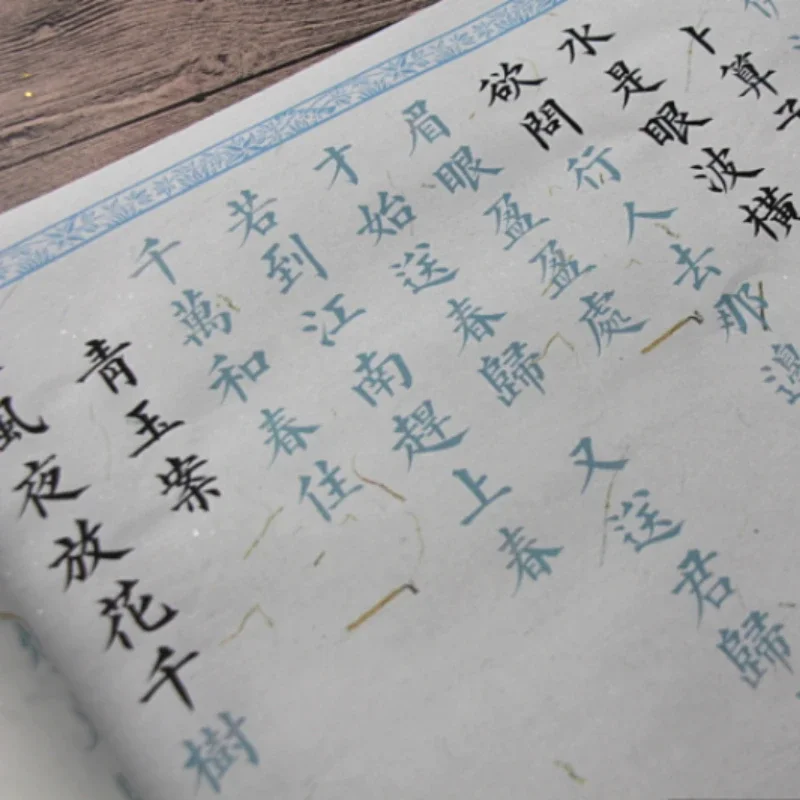 卜算子
水是眼波橫
欲問行人去那邊
眉眼盈盈處
才始送春歸 又送君歸
若到江南趕上春
千萬和春住
青玉案
風夜放花千樹